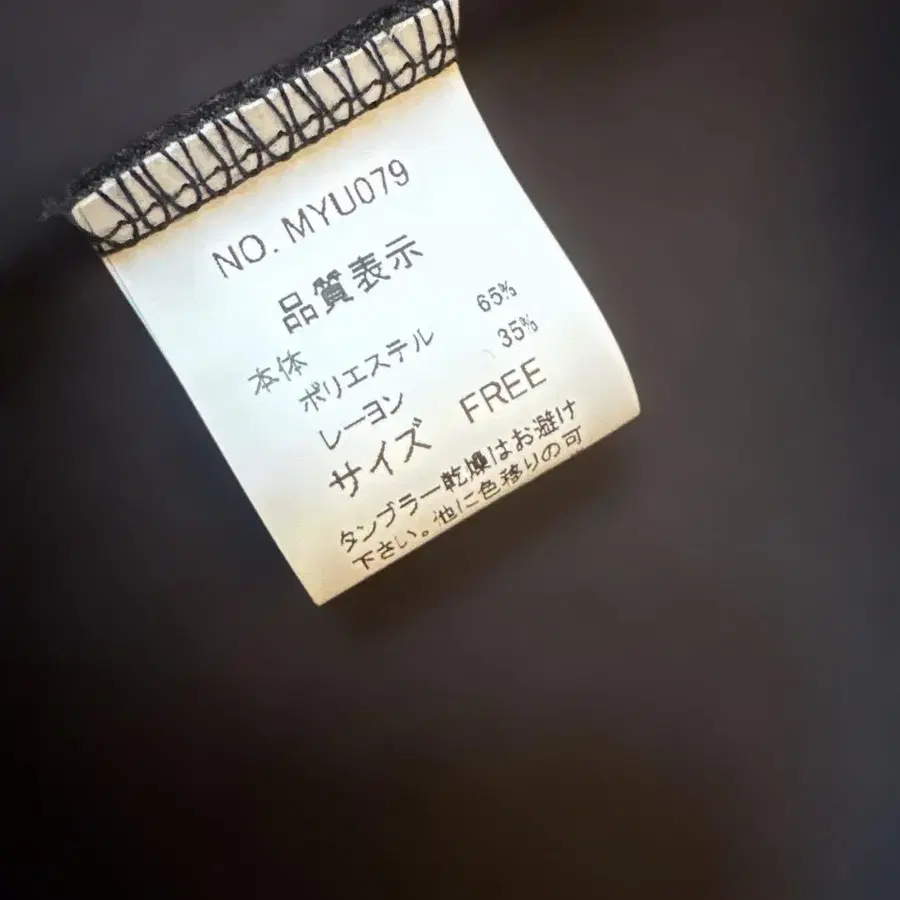 NO. MYU079
品質表示
本体
ポリエステル 65%
レーヨン 35%
サイズ FREE
タンブラー乾燥はお避け
下さい。他に色移りの可